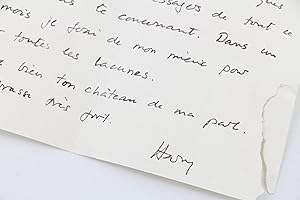 ssages de tout ce
te concernant. Dans un
mois je ferai de mon mieux pour
toutes les lacunes.
bien ton château de ma part.
très fort.